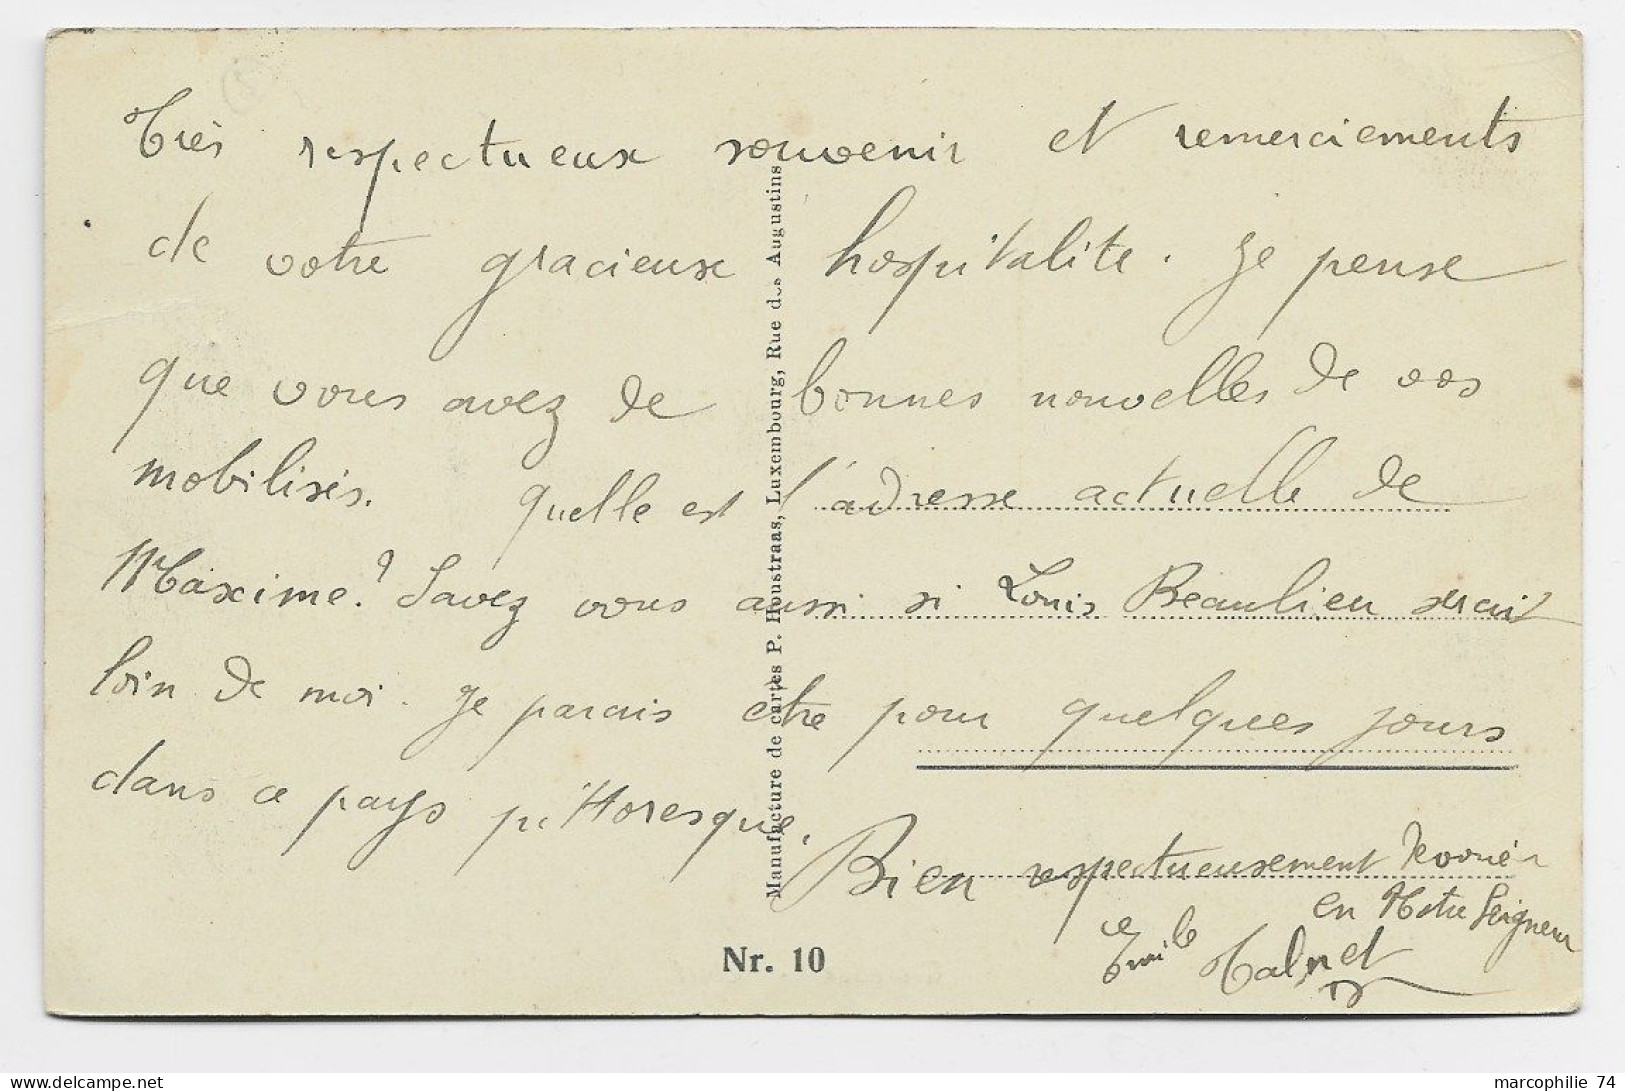 Très respectueux souvenir et remerciements
de votre gracieuse hospitalité. Je pense
que vous avez de bonnes nouvelles de vos
mobilisés. Quelle est l'adresse actuelle de
Maxime? Savez vous aussi si Louis Beaulieu serait
loin de moi. Je parais être pour quelques jours
dans ce pays pittoresque.
Bien respectueusement
en Notre Seigneur
Emile
Manufacture de cartes P. Houstraas, Luxembourg, Rue des Augustins
Nr. 10
marcophilie 74